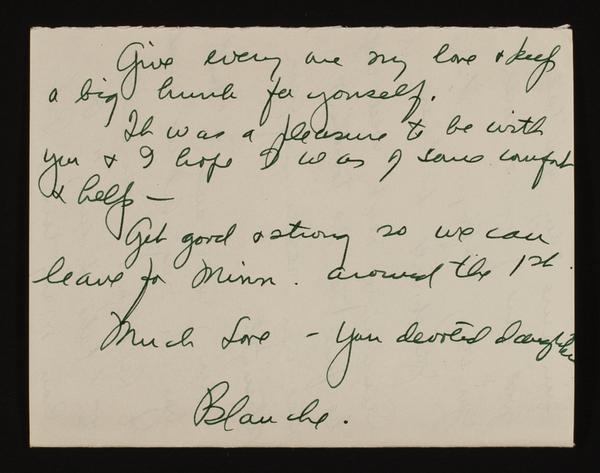 Give every one my love & keep
a big hunk for yourself.
It was a pleasure to be with
you & I hope I was of some comfort
& help —
Get good & strong so we can
leave for Minn. around the 1st.
Much Love - Your devoted daughter
Blanche.